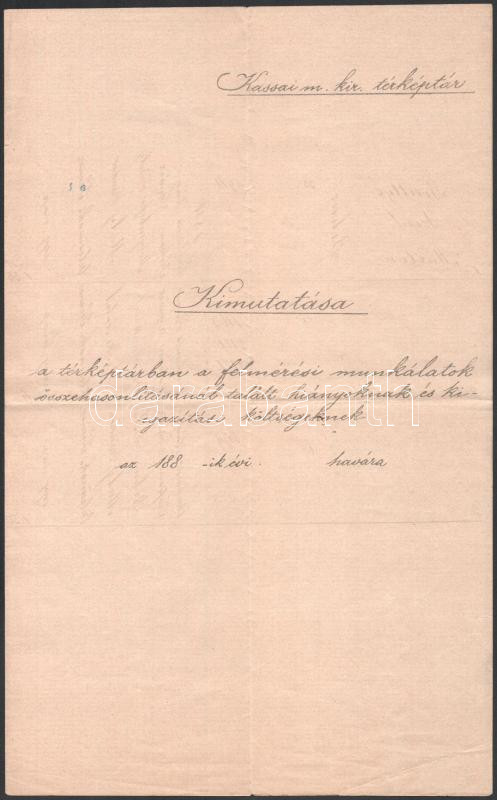 Kassai m. kir. térképtár
Kimutatása
a térképtárban a felmérési munkálatok
összehasonlításánál talált hiányoknak és ki-
igazítási költségeknek
az 188 -ik évi havára
darabanth